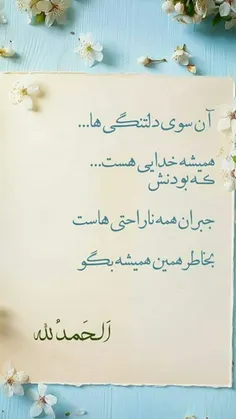 آن سوی دلتنگی ها...
همیشه خدایی هست...
که بودنش
جبران همه ناراحتی هاست
بخاطر همین همیشه بگو
اَلحَمدُلله